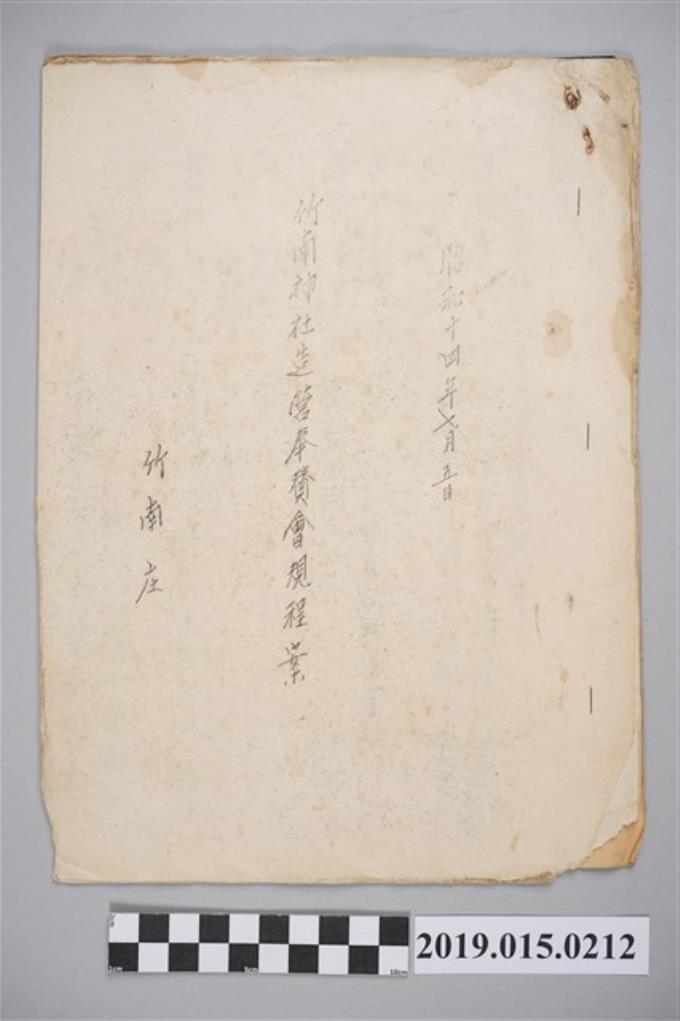 昭和十四年七月五日
竹南神社造營奉賛會規程案
竹南庄
2019.015.0212
1cm
5cm
10cm